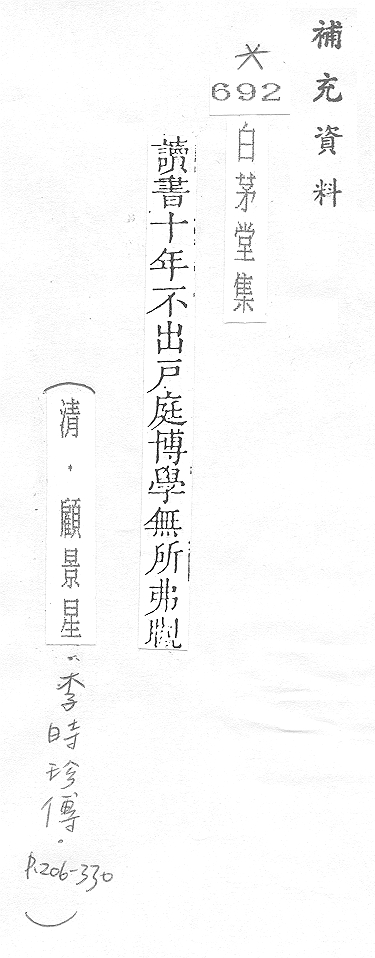 補充資料
692
白茅堂集
讀書十年不出戶庭博學無所弗覵
（清．顧景星．李時珍傳。
P.206-330）